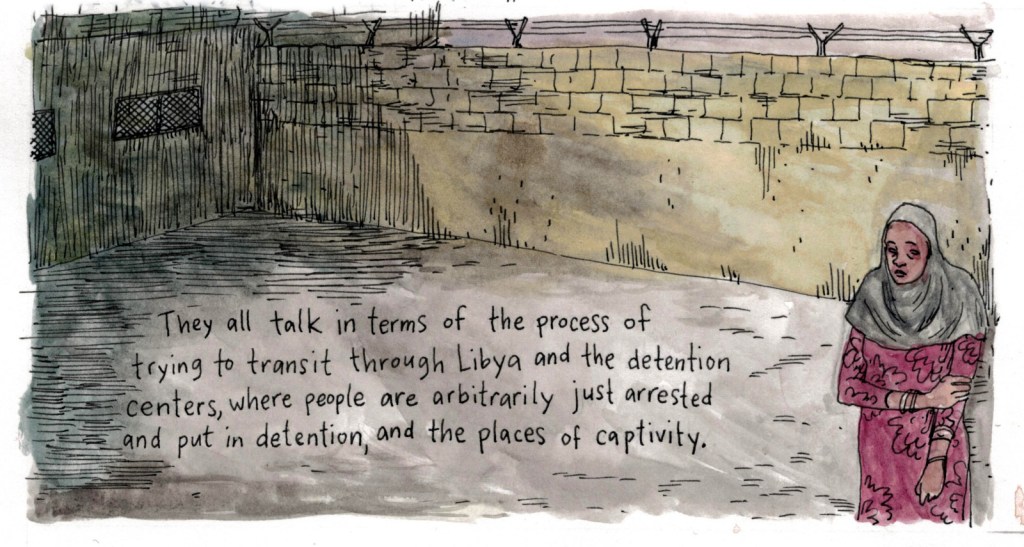 They all talk in terms of the process of
trying to transit through Libya and the detention
centers, where people are arbitrarily just arrested
and put in detention, and the places of captivity.